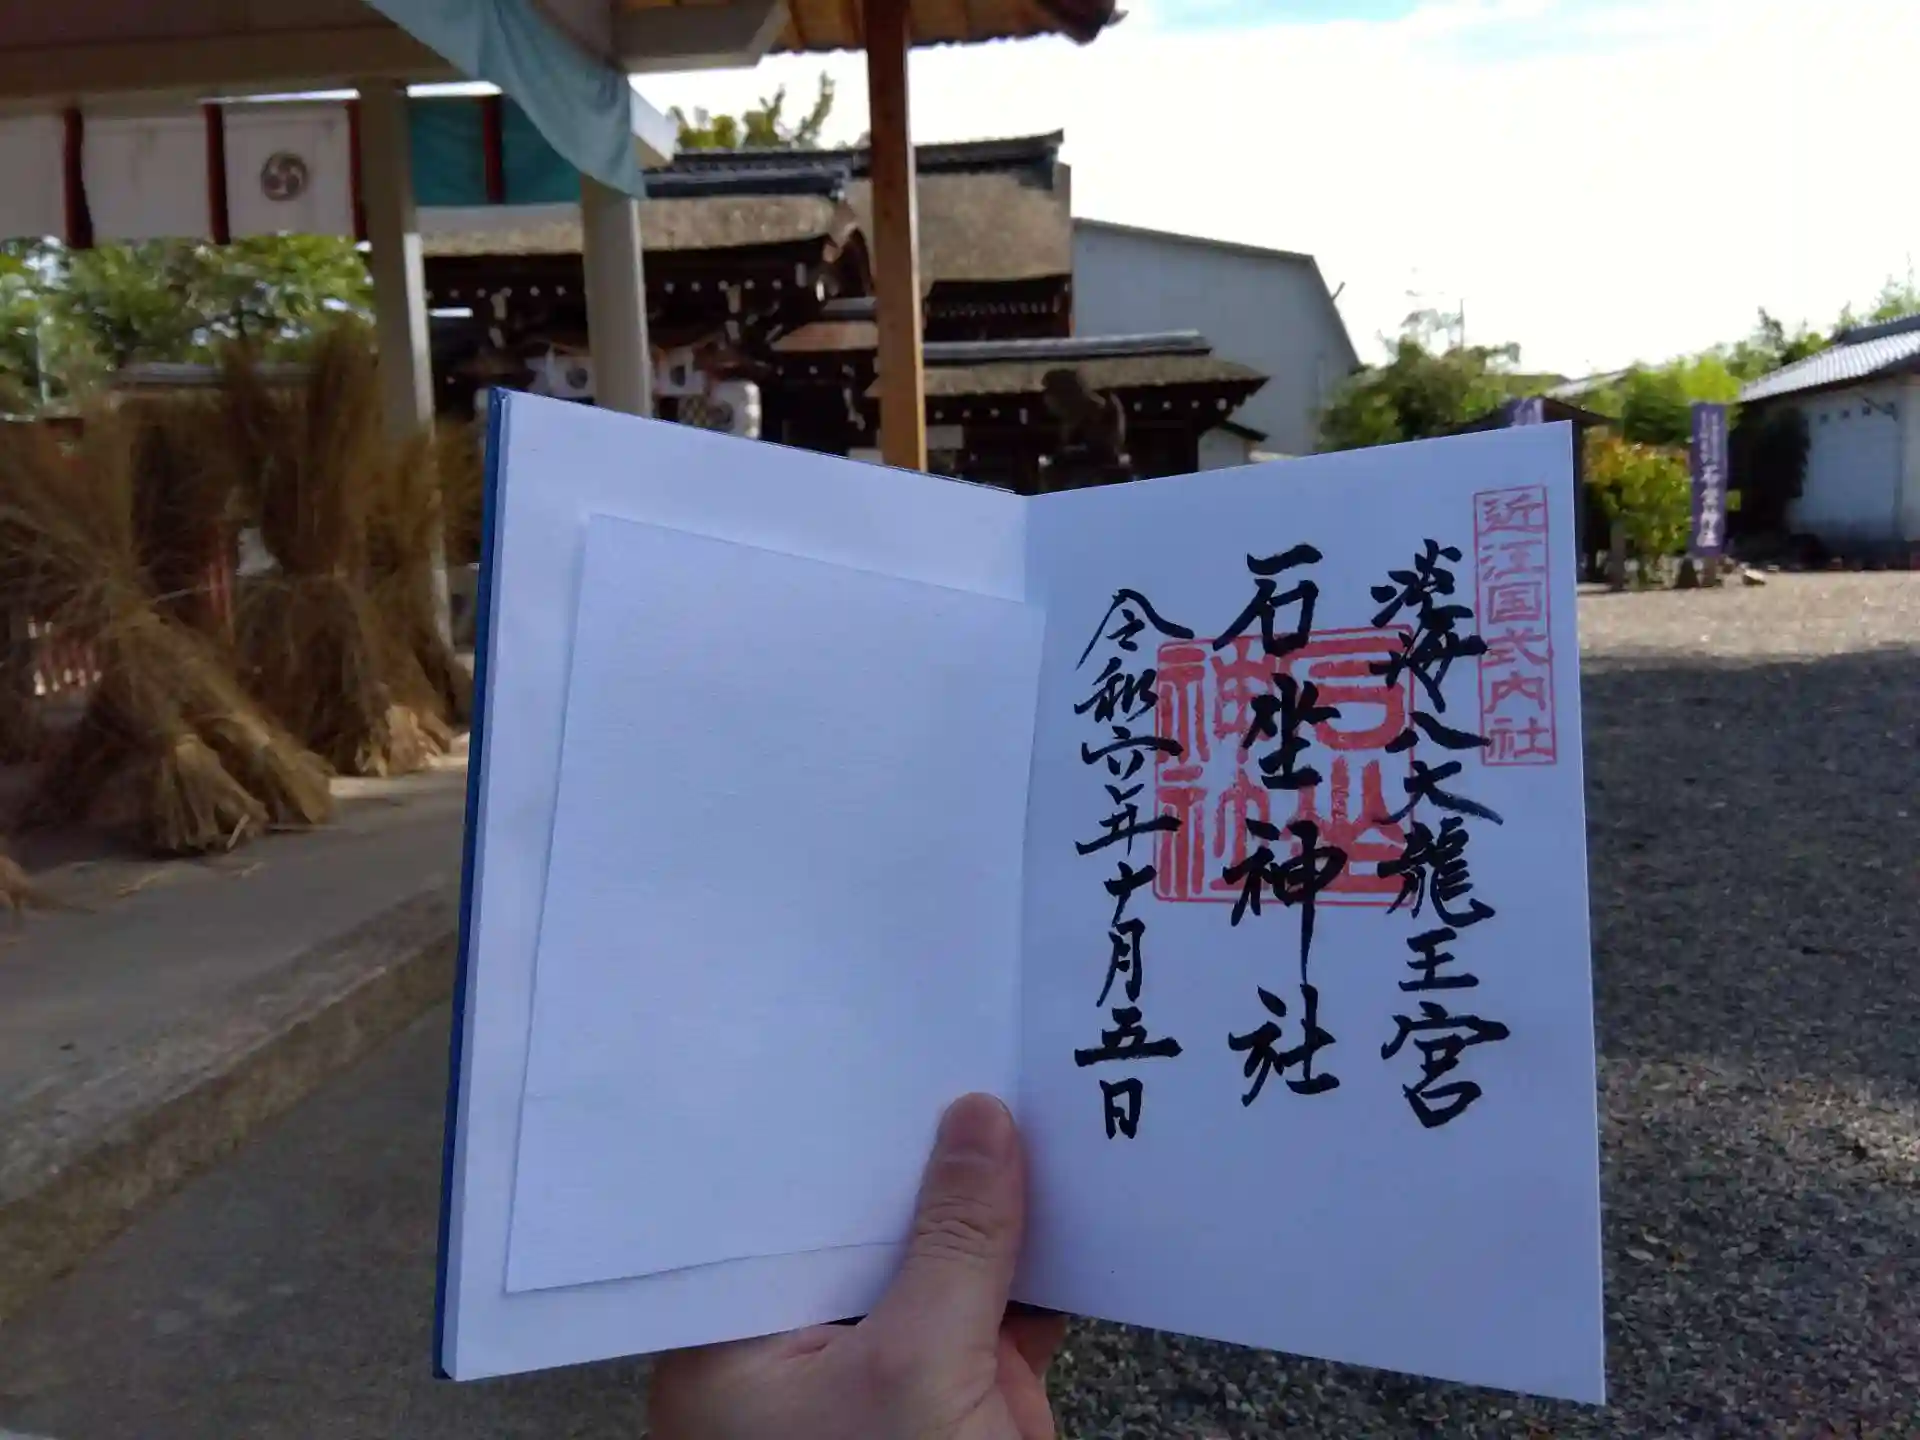 近江国式内社
淡海八大龍王宮
石坐神社
令和六年十月五日
石坐
神社
石坐神社